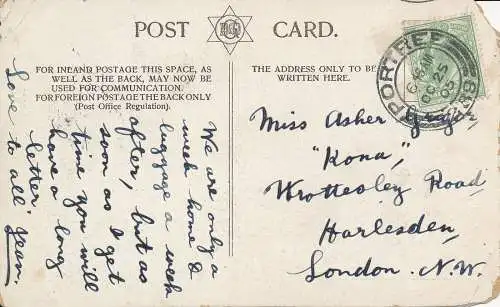 POST CARD.
FOR INLAND POSTAGE THIS SPACE, AS
WELL AS THE BACK, MAY NOW BE
USED FOR COMMUNICATION.
FOR FOREIGN POSTAGE THE BACK ONLY
(Post Office Regulation).
THE ADDRESS ONLY TO BE
WRITTEN HERE.
PORTREE
OC 25
05
We are only a
week home &
luggage a week
after, but as
soon as I get
time you will
have a long
letter.
Love to all. Jean.
Miss Asher
"Kona",
Wrottesley Road
Harlesden,
London. N.W.